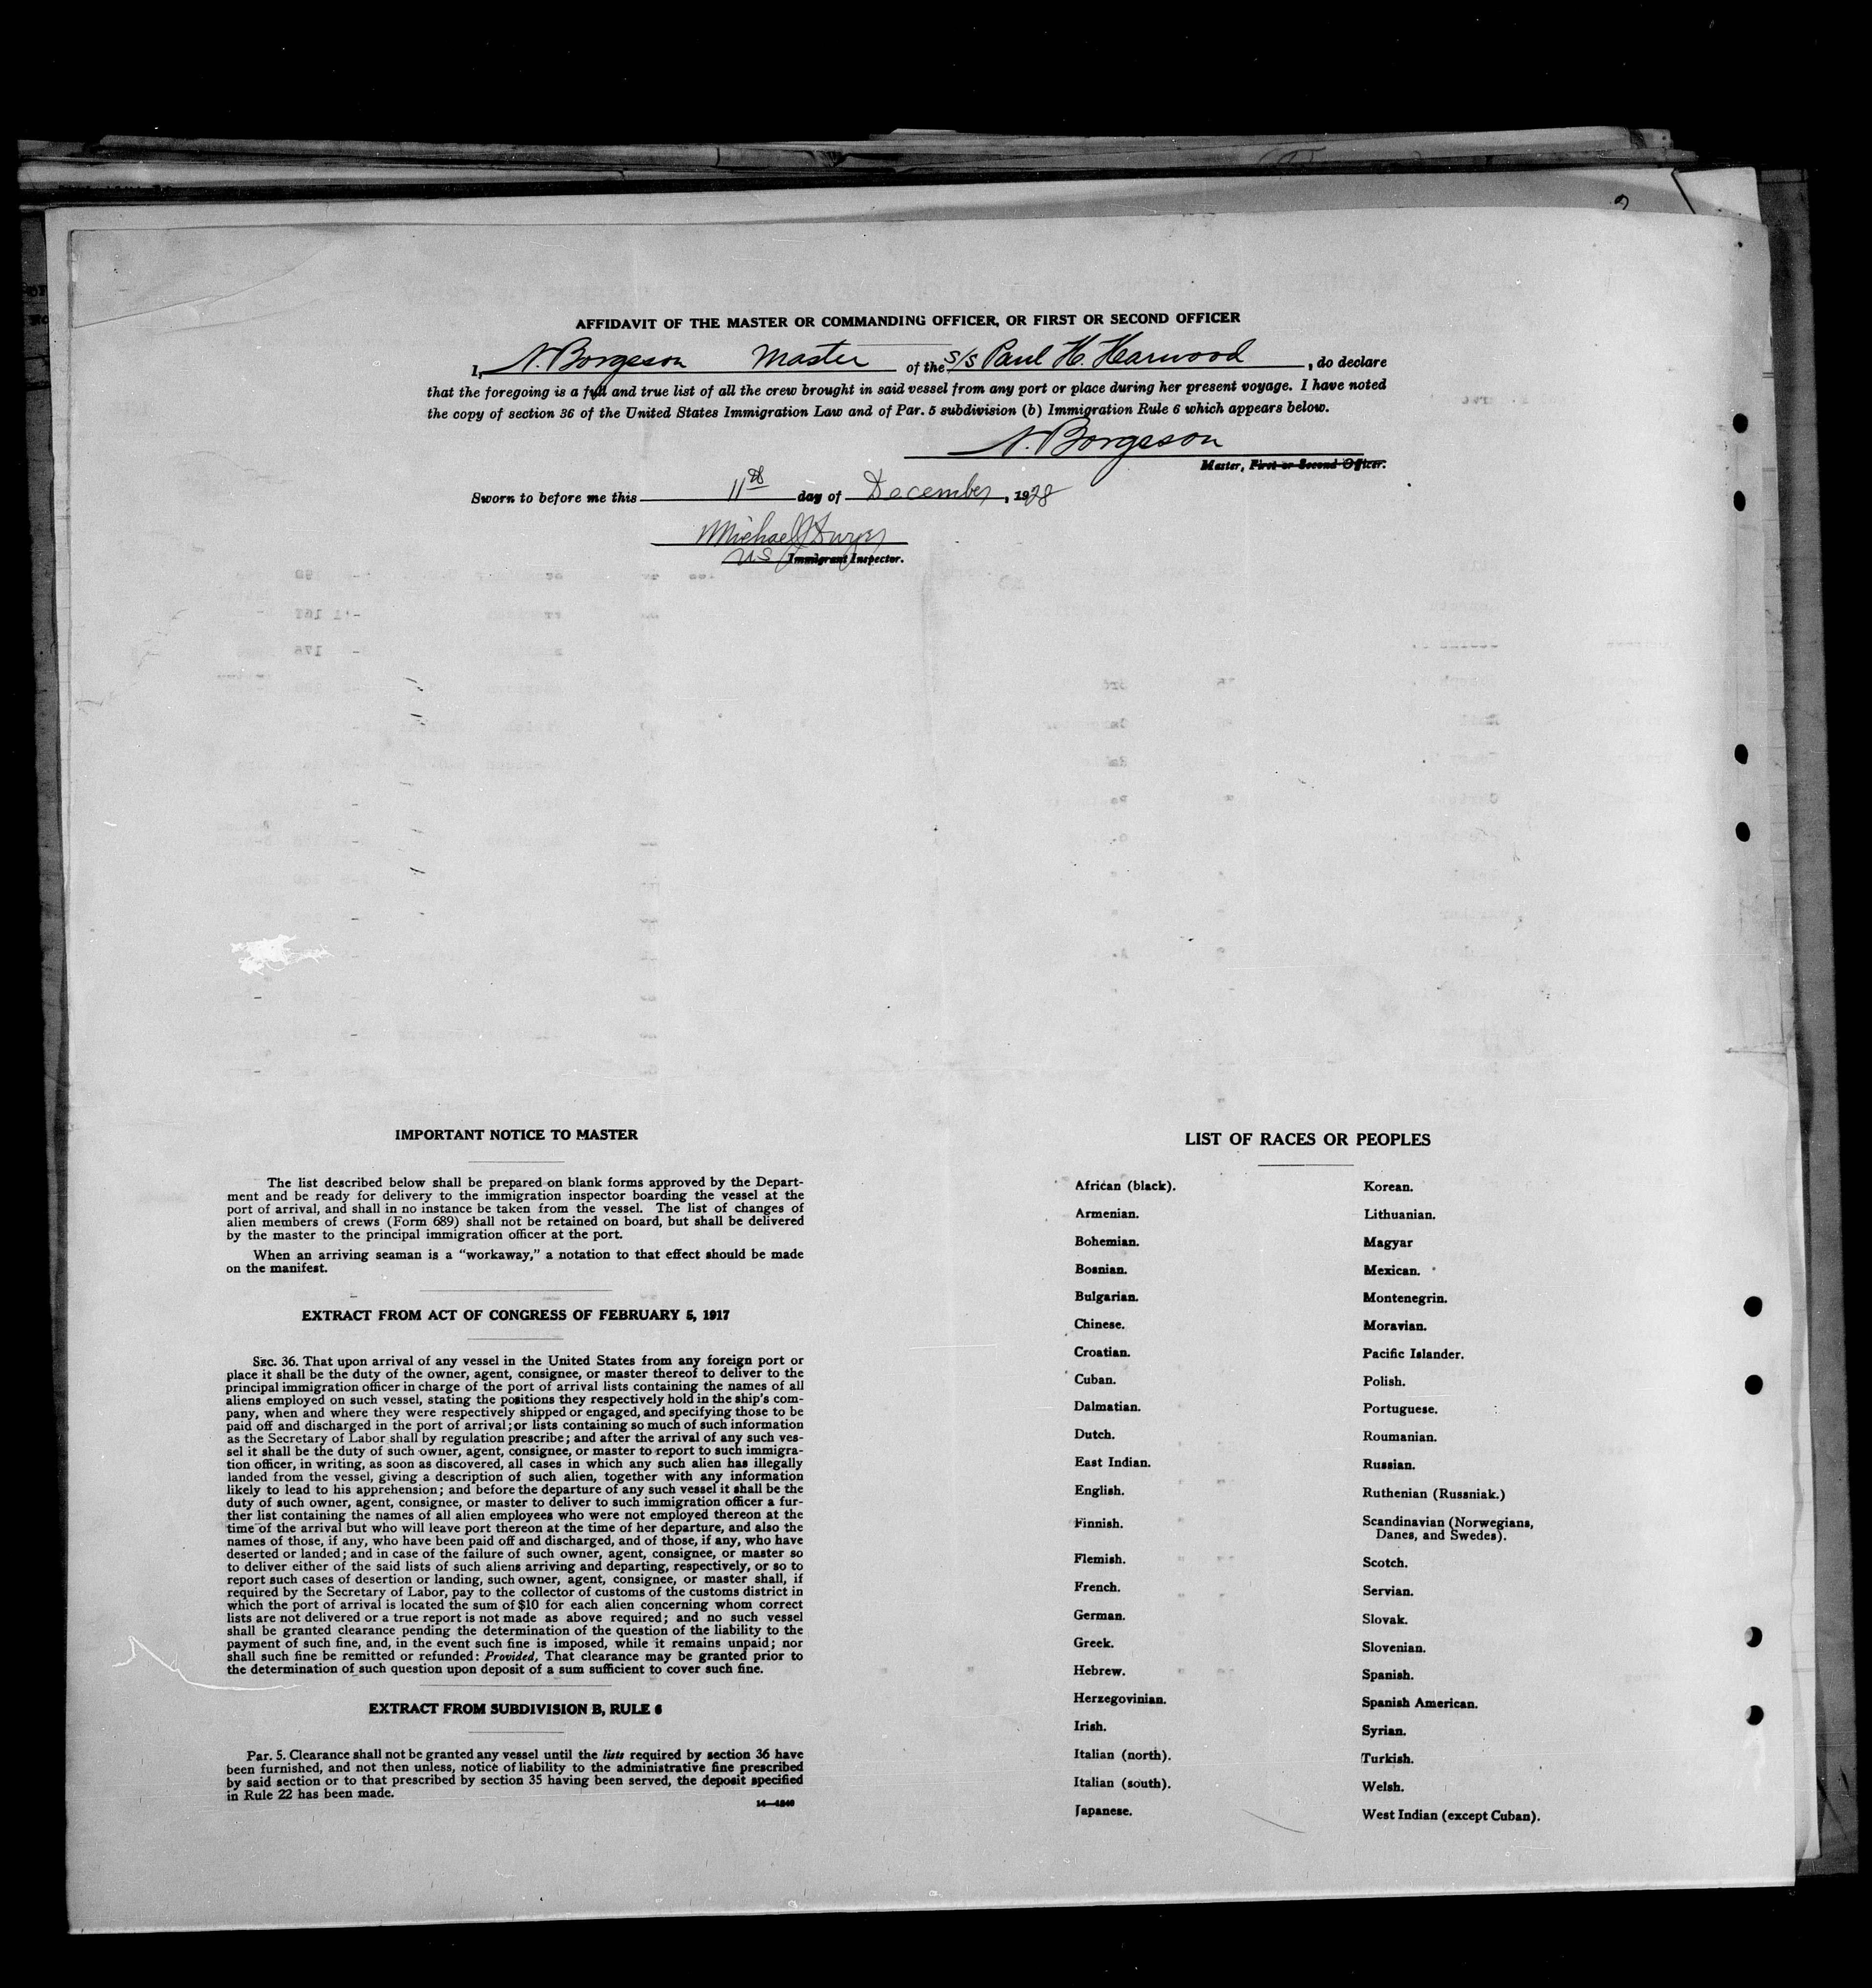 AFFIDAVIT OF THE MASTER OR COMMANDING OFFICER, OR FIRST OR SECOND OFFICER
I, N. Borgeson Master of the S/S Paul H. Harwood, do declare
that the foregoing is a full and true list of all the crew brought in said vessel from any port or place during her present voyage. I have noted
the copy of section 36 of the United States Immigration Law and of Par. 5 subdivision (b) Immigration Rule 6 which appears below.
N. Borgeson
Master, First or Second Officer.
Sworn to before me this 11th day of December, 1928
Michael
US Immigrant Inspector.
IMPORTANT NOTICE TO MASTER
The list described below shall be prepared on blank forms approved by the Depart-
ment and be ready for delivery to the immigration inspector boarding the vessel at the
port of arrival, and shall in no instance be taken from the vessel. The list of changes of
alien members of crews (Form 689) shall not be retained on board, but shall be delivered
by the master to the principal immigration officer at the port.
When an arriving seaman is a "workaway," a notation to that effect should be made
on the manifest.
EXTRACT FROM ACT OF CONGRESS OF FEBRUARY 5, 1917
SEC. 36. That upon arrival of any vessel in the United States from any foreign port or
place it shall be the duty of the owner, agent, consignee, or master thereof to deliver to the
principal immigration officer in charge of the port of arrival lists containing the names of all
aliens employed on such vessel, stating the positions they respectively hold in the ship's com-
pany, when and where they were respectively shipped or engaged, and specifying those to be
paid off and discharged in the port of arrival; or lists containing so much of such information
as the Secretary of Labor shall by regulation prescribe; and after the arrival of any such ves-
sel it shall be the duty of such owner, agent, consignee, or master to report to such immigra-
tion officer, in writing, as soon as discovered, all cases in which any such alien has illegally
landed from the vessel, giving a description of such alien, together with any information
likely to lead to his apprehension; and before the departure of any such vessel it shall be the
duty of such owner, agent, consignee, or master to deliver to such immigration officer a fur-
ther list containing the names of all alien employees who were not employed thereon at the
time of the arrival but who will leave port thereon at the time of her departure, and also the
names of those, if any, who have been paid off and discharged, and of those, if any, who have
deserted or landed; and in case of the failure of such owner, agent, consignee, or master so
to deliver either of the said lists of such aliens arriving and departing, respectively, or so to
report such cases of desertion or landing, such owner, agent, consignee, or master shall, if
required by the Secretary of Labor, pay to the collector of customs of the customs district in
which the port of arrival is located the sum of $10 for each alien concerning whom correct
lists are not delivered or a true report is not made as above required; and no such vessel
shall be granted clearance pending the determination of the question of the liability to the
payment of such fine, and, in the event such fine is imposed, while it remains unpaid; nor
shall such fine be remitted or refunded: Provided, That clearance may be granted prior to
the determination of such question upon deposit of a sum sufficient to cover such fine.
EXTRACT FROM SUBDIVISION B, RULE 6
Par. 5. Clearance shall not be granted any vessel until the lists required by section 36 have
been furnished, and not then unless, notice of liability to the administrative fine prescribed
by said section or to that prescribed by section 35 having been served, the deposit specified
in Rule 22 has been made.
14—4840
LIST OF RACES OR PEOPLES
African (black).
Armenian.
Bohemian.
Bosnian.
Bulgarian.
Chinese.
Croatian.
Cuban.
Dalmatian.
Dutch.
East Indian.
English.
Finnish.
Flemish.
French.
German.
Greek.
Hebrew.
Herzegovinian.
Irish.
Italian (north).
Italian (south).
Japanese.
Korean.
Lithuanian.
Magyar
Mexican.
Montenegrin.
Moravian.
Pacific Islander.
Polish.
Portuguese.
Roumanian.
Russian.
Ruthenian (Russniak.)
Scandinavian (Norwegians,
Danes, and Swedes).
Scotch.
Servian.
Slovak.
Slovenian.
Spanish.
Spanish American.
Syrian.
Turkish.
Welsh.
West Indian (except Cuban).